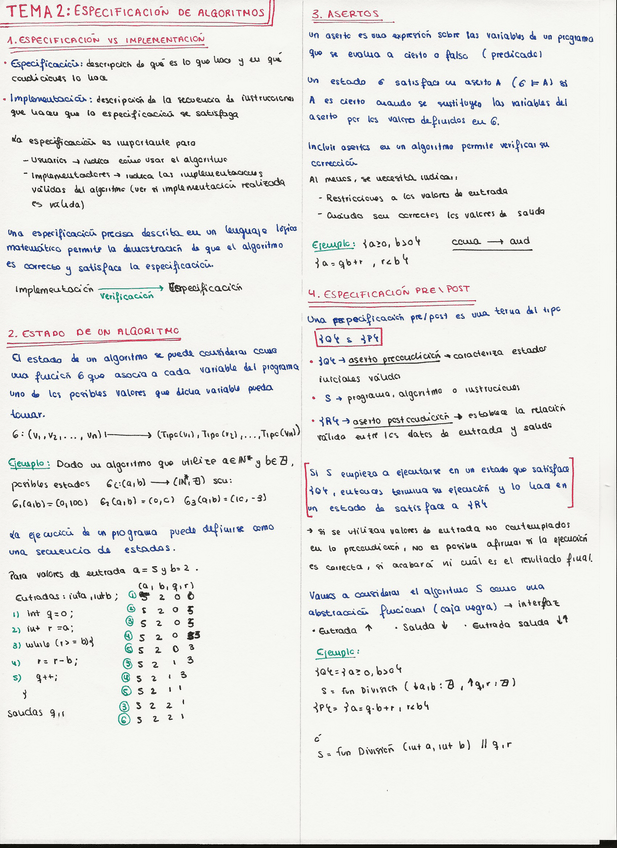 TEMA 2: ESPECIFICACIÓN DE ALGORITMOS
1. ESPECIFICACIÓN VS IMPLEMENTACIÓN
• Especificación: descripción de qué es lo que hace y en qué
condiciones lo hace
• Implementación: descripción de la secuencia de instrucciones
que hacen que la especificación se satisfaga
La especificación es importante para
- Usuarios → indica cómo usar el algoritmo
- Implementadores → indica las implementaciones
válidas del algoritmo (ver si implementación realizada
es válida)
Una especificación precisa descrita en un lenguaje lógico
matemático permite la demostración de que el algoritmo
es correcto y satisface la especificación.
Implementación → Especificación
verificación
2. ESTADO DE UN ALGORITMO
El estado de un algoritmo se puede considerar como
una función б que asocia a cada variable del programa
uno de los posibles valores que dicha variable pueda
tomar.
б: (v₁, v₂, ..., vn) ⟼ (Tipo(v₁), Tipo(v₂), ..., Tipo(vn))
Ejemplo: Dado un algoritmo que utilice a ∈ ℕ* y b ∈ ℤ,
posibles estados бi:(a,b) → (ℕ*, ℤ) son:
б₁(a,b) = (0,100) б₂(a,b) = (0,0) б₃(a,b) = (10,-3)
La ejecución de un programa puede definirse como
una secuencia de estados.
Para valores de entrada a = 5 y b = 2.
(a, b, q, r)
Entradas: int a, int b; ① 5 2 0 0
1) int q = 0; ② 5 2 0 5
2) int r = a; ③ 5 2 0 5
3) while (r >= b) { ④ 5 2 0 5
4) r = r - b; ⑤ 5 2 0 3
5) q++; ③ 5 2 1 3
} ④ 5 2 1 3
⑤ 5 2 1 1
salidas q, r ③ 5 2 2 1
⑥ 5 2 2 1
3. ASERTOS
Un aserto es una expresión sobre las variables de un programa
que se evalúa a cierto o falso (predicado)
Un estado б satisface un aserto A (б ⊨ A) si
A es cierto cuando se sustituyen las variables del
aserto por los valores definidos en б.
Incluir asertos en un algoritmo permite verificar su
corrección
Al menos, se necesita indicar,
- Restricciones a los valores de entrada
- Cuándo son correctos los valores de salida
Ejemplo: {a ≥ 0, b > 0} coma → and
{a = qb + r, r < b}
4. ESPECIFICACIÓN PRE \ POST
Una especificación pre/post es una terna del tipo
{Q} S {P}
• {Q} → aserto precondición → caracteriza estados
iniciales válido
• S → programa, algoritmo o instrucciones
• {R} → aserto postcondición → establece la relación
válida entre los datos de entrada y salida
Si S empieza a ejecutarse en un estado que satisface
{Q}, entonces termina su ejecución y lo hace en
un estado de satisface a {R}
→ si se utilizan valores de entrada no contemplados
en la precondición, no es posible afirmar si la ejecución
es correcta, si acabará ni cuál es el resultado final.
Vamos a considerar el algoritmo S como una
abstracción funcional (caja negra) → interfaz
• Entrada ↑ • Salida ↓ • Entrada salida ↓↑
Ejemplo:
{Q} = {a ≥ 0, b > 0}
S = fun División (↓a,b: ℤ, ↑q,r: ℤ)
{P} = {a = q·b + r, r < b}
ó
S = fun División (int a, int b) // q, r